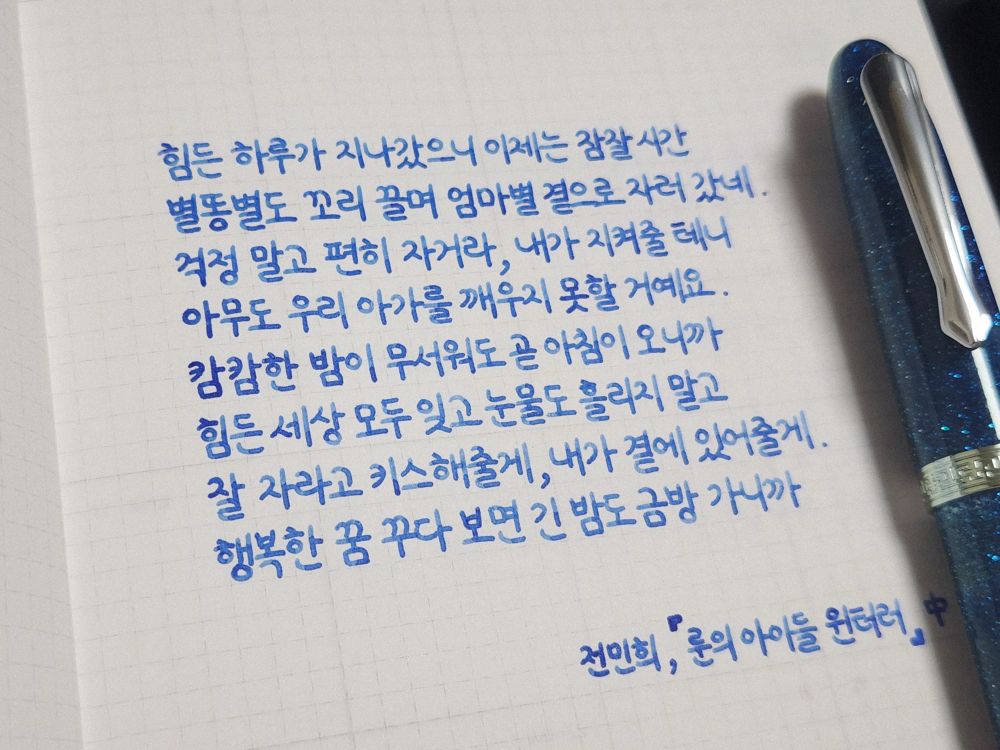 힘든 하루가 지나갔으니 이제는 잠잘 시간
별똥별도 꼬리 끌며 엄마별 곁으로 자러 갔네.
걱정 말고 편히 자거라, 내가 지켜줄 테니
아무도 우리 아가를 깨우지 못할 거예요.
캄캄한 밤이 무서워도 곧 아침이 오니까
힘든 세상 모두 잊고 눈물도 흘리지 말고
잘 자라고 키스해줄게, 내가 곁에 있어줄게.
행복한 꿈 꾸다 보면 긴 밤도 금방 가니까
전민희, 『룬의 아이들 윈터러』 中